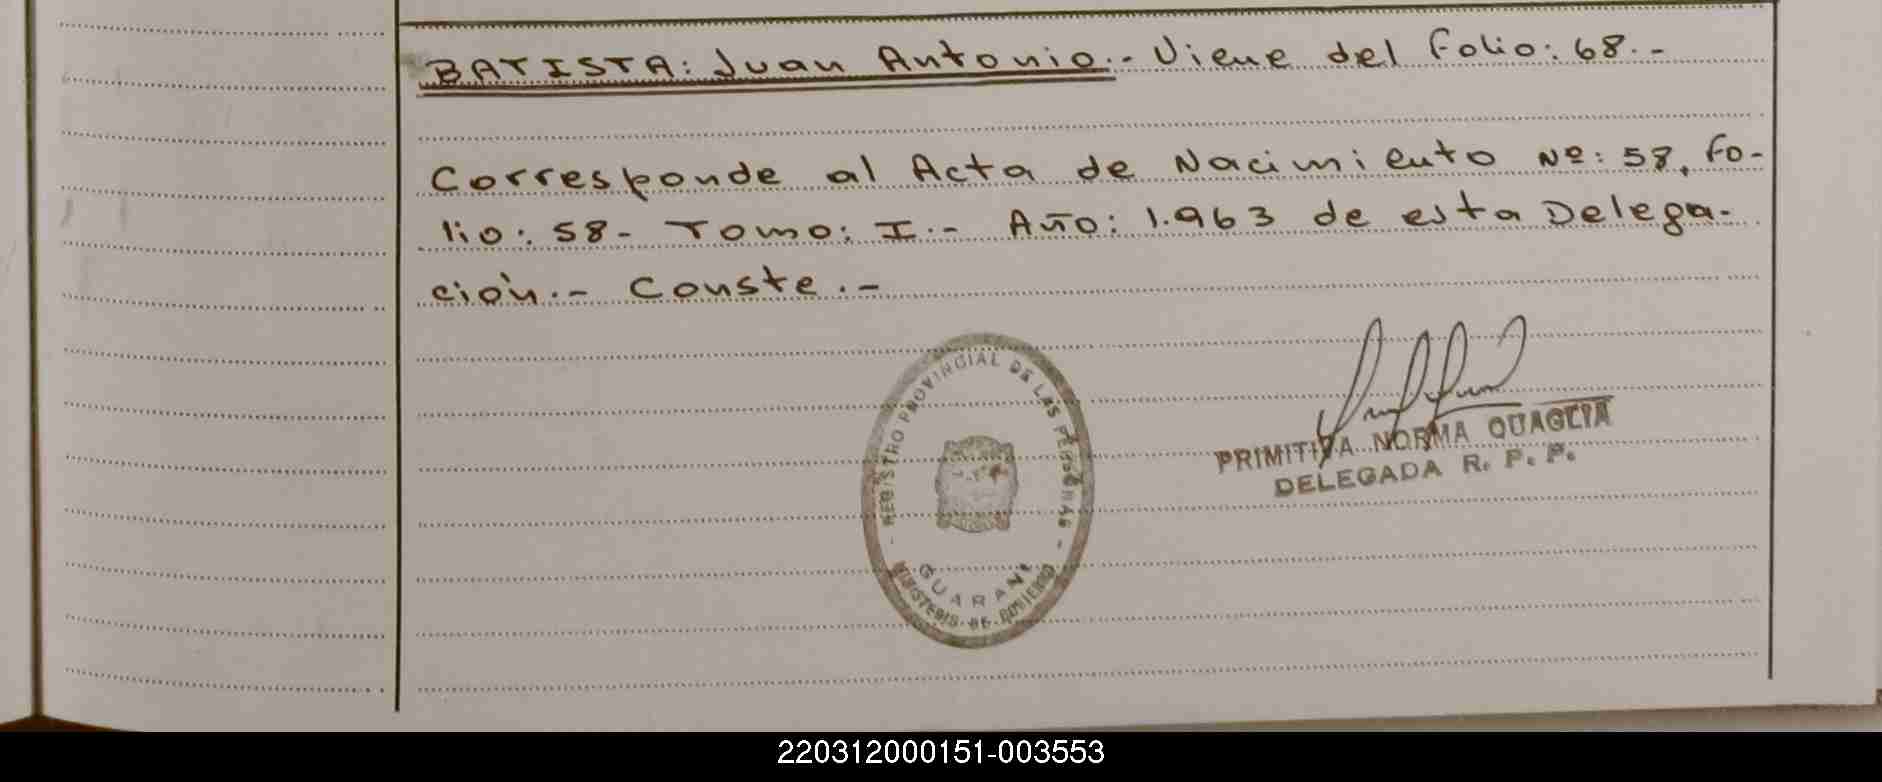 BATISTA: Juan Antonio.- Viene del Folio: 68.-
Corresponde al Acta de Nacimiento Nº: 58, Fo-
lio: 58- Tomo: I.- Año: 1.963 de esta Delega-
ción.- Conste.-
- REGISTRO PROVINCIAL DE LAS PERSONAS -
GUARANI
MINISTERIO DE GOBIERNO
PRIMITIVA NORMA QUAGLIA
DELEGADA R. P. P.
220312000151-003553